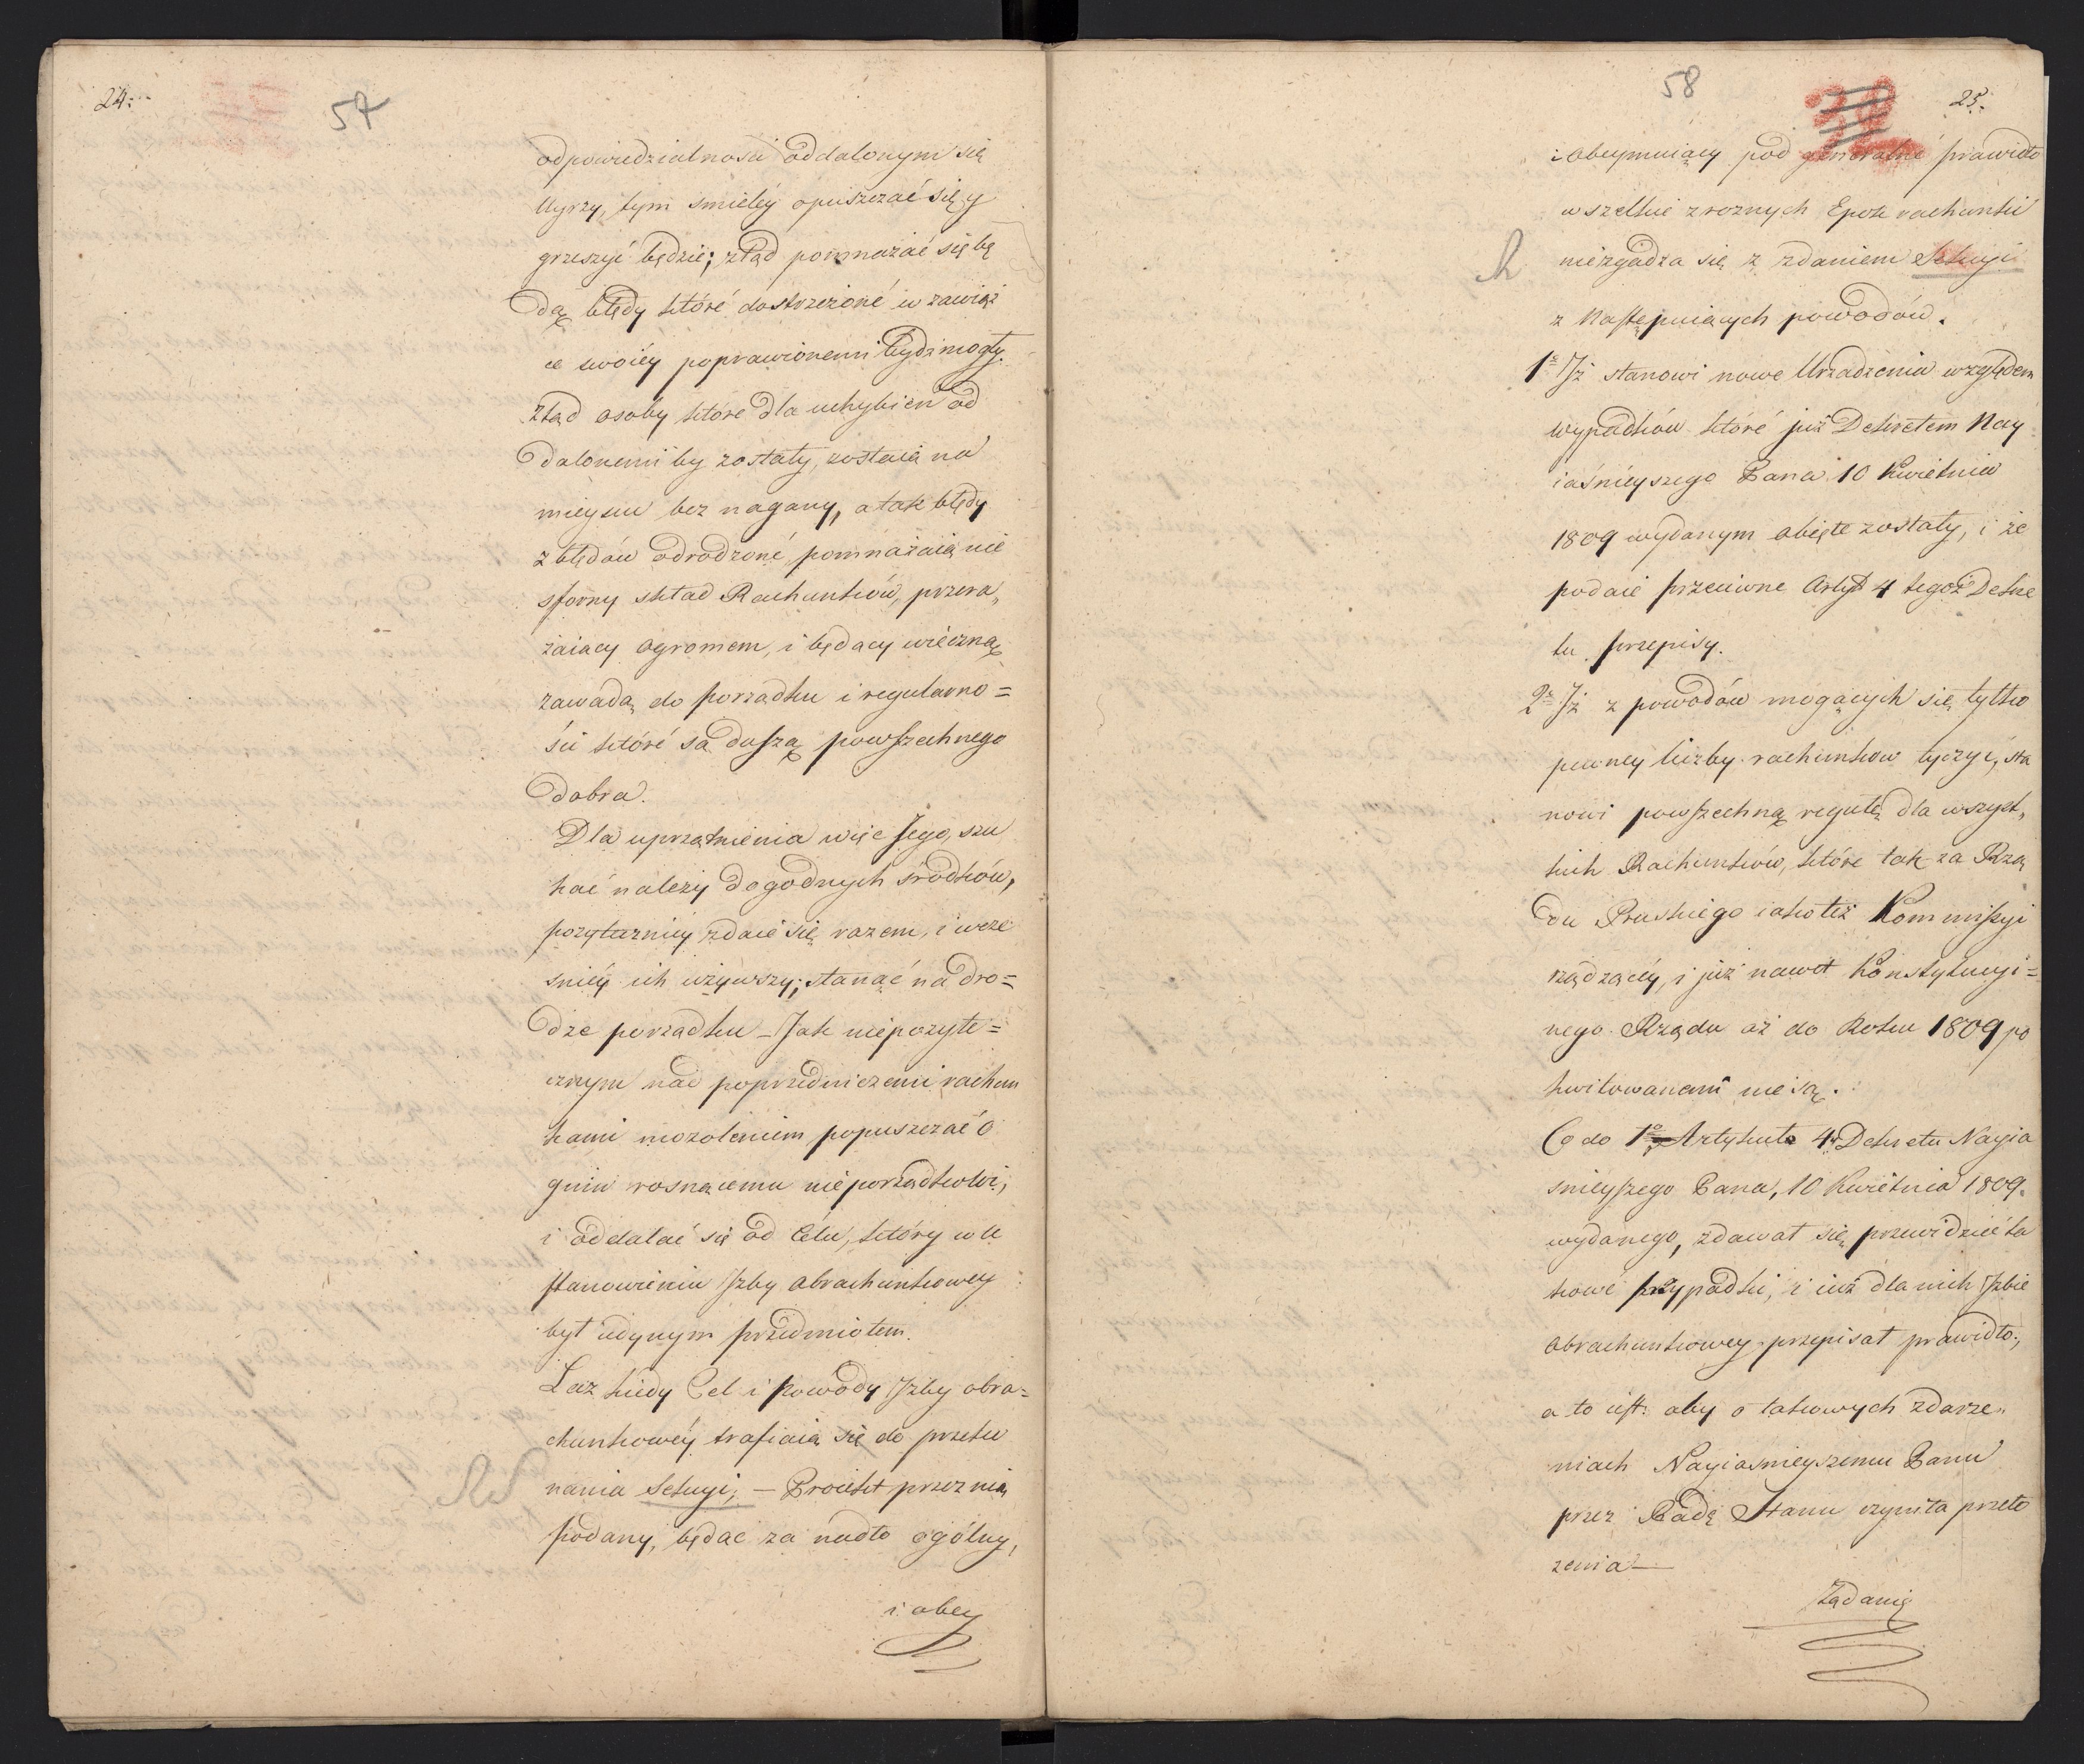 24.
57
odpowiedzialnosci oddalonym się
Uyrzy, tym smieléy opuszczać się y
grzeszyć będzie; ztąd pomnażać się bę
dą błędy które dostrzeżoné w zawiąz
ce swoiéy poprawionemi bydź mogły.
ztąd osoby które dla uchybień od
dalonemi by zostały, zostaią na
mieyscu bez nagany, a tak błędy
z błędów odrodzoné pomnażaią nie
sforny skład Rachunków, przera„
żaiący ogromem, i będący wieczną
zawadą do porządku i regularno=
ści któré są duszą powszechnego
dobra.
Dla uprzątnienia więc Jego, szu
kać należy dogodnych śrzodków,
pozyteczniéy zdaie się razem, i wcze
sniéy ich używszy; stanąć na dro=
dze porządku – Jak niepozyte=
cznym nad poprzedniczemi rachun
kami mozoleniem popuszczać o
gniw rosnącemu nieporządkowi,
i oddalać się od Célu, który w u
stanowieniu Jzby obrachunkowey
był iedynym przedmiotem.
Lecz kiedy Cel i powody Jzby obra=
chunkowéy trafiaią się do przeko
nania Sekcyi; – Proiekt przez nią
podany, będąc za nadto ogólny,
i obey
58
25.
i obeymuiący pod generalné prawidło
wszelkie z roznych Epok rachunki
niezgadza się z zdaniem Sekcyi
z następuiących powodów.
1º Jż stanowi nowe Urządzenia względem
wypadków któré już Dekretem Nay
iaśnieyszego Pana 10 Kwietnia
1809 wydanym obięte zostały, i że
podaie przeciwne Artyk 4 tegoż Dekre
tu przepisy.
2º Jż z powodów mogących się tylko
pewney liczby rachunkow tyczyć, sta
nowi powszechną regułę dla wszyst„
kich Rachunków, które tak za Rzą
du Pruskiego iako też Kommissyi
rządzącéy, i już nawet Konstytucyi=
nego Rządu aż do Roku 1809 po
kwitowanemi nie są.
Co do 1º Artykuł 4. Dekretu Nayia
snieyszego Pana, 10 Kwietnia 1809.
wydanego, zdawał się przewidzieć ta
kowe przypadki, i iuż dla nich Jzbie
obrachunkowey przepisał prawidło,
a to iest: aby o takowych zdarze„
niach Nayiasnieyszemu Panu
przez Radę Stanu czyniła przeło
żenia –
Żądanie